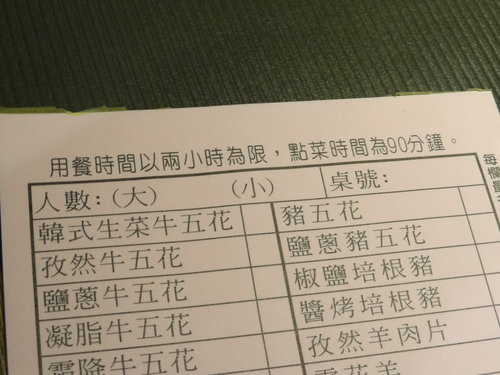 用餐時間以兩小時為限，點菜時間為90分鐘。
人數：(大) (小) 桌號：
韓式生菜牛五花 豬五花
孜然牛五花 鹽蔥豬五花
鹽蔥牛五花 椒鹽培根豬
凝脂牛五花 醬烤培根豬
霜降牛五花 孜然羊肉片
雪花羊
每欄